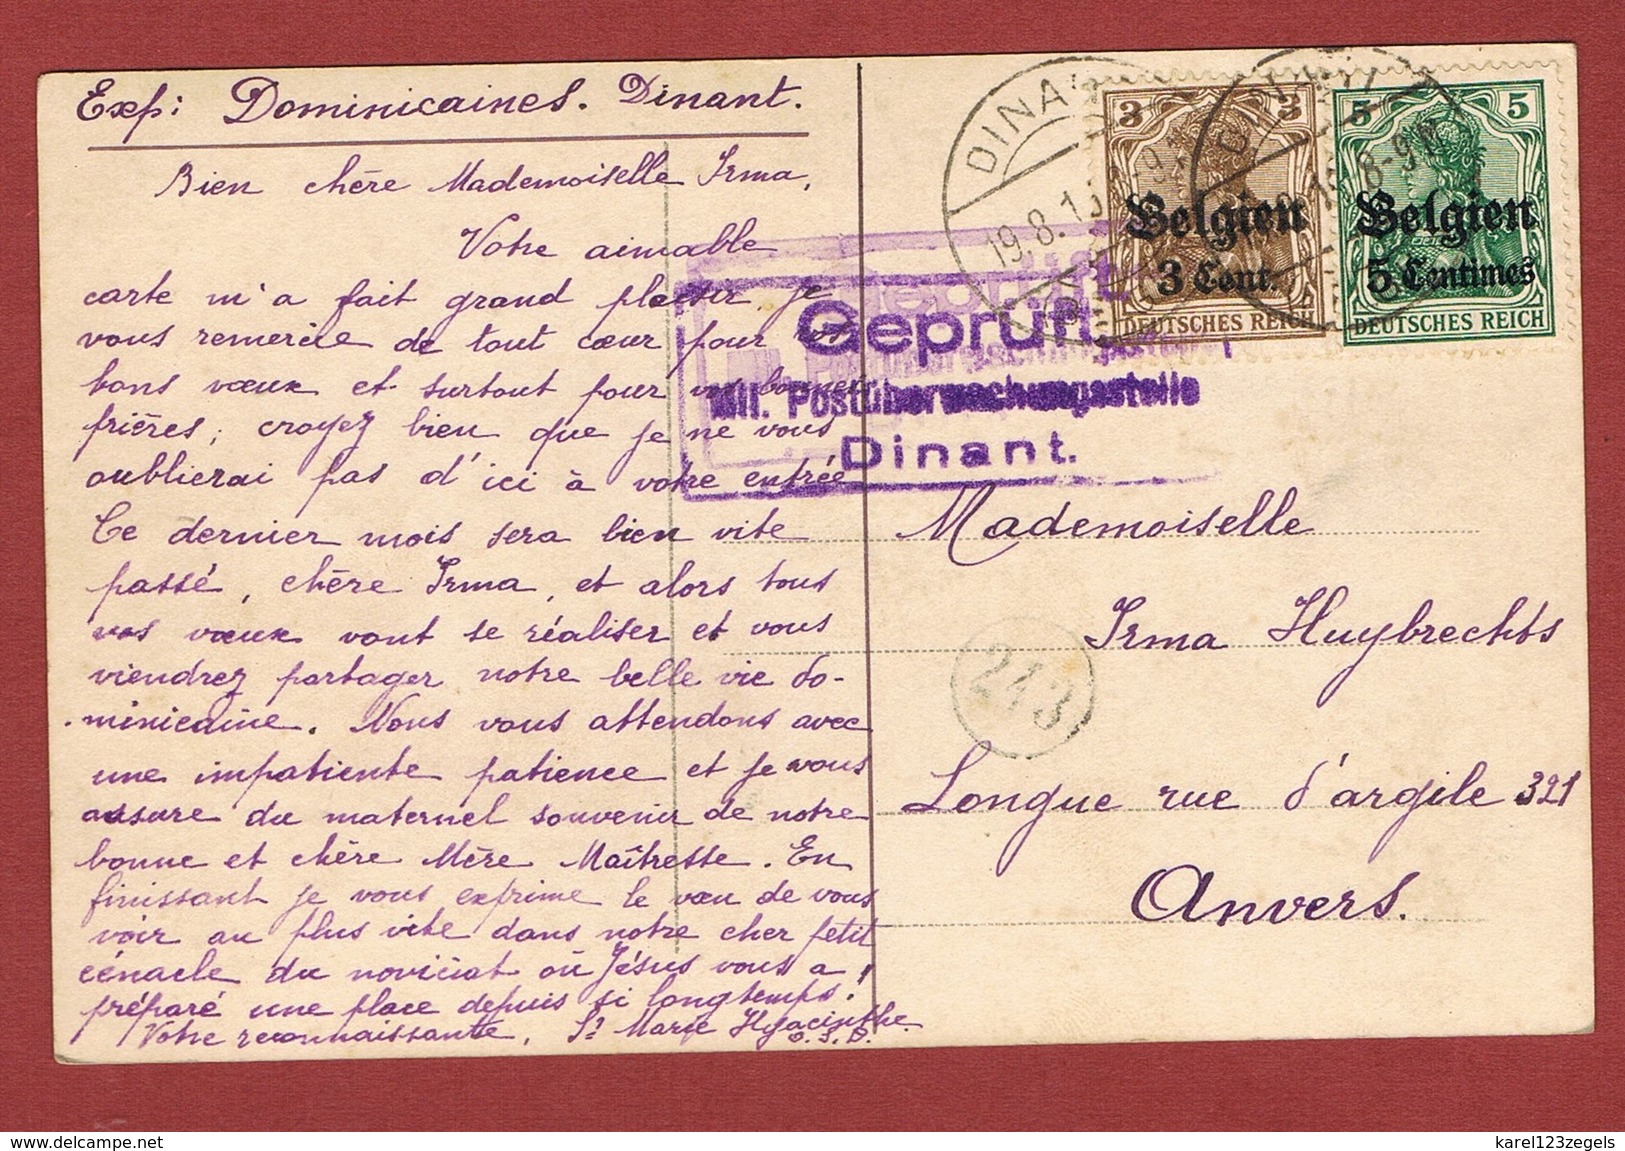 Exp: Dominicaines. Dinant.
Bien chère Mademoiselle Irma,
Votre aimable
carte m'a fait grand plaisir je
vous remercie de tout cœur pour vos
bons vœux et surtout pour vos bonnes
prières; croyez bien que je ne vous
oublierai pas d'ici à votre entrée
Ce dernier mois sera bien vite
passé, chère Irma, et alors tous
vos vœux vont se réaliser et vous
viendrez partager notre belle vie do-
minicaine. Nous vous attendons avec
une impatiente patience et je vous
assure du maternel souvenir de notre
bonne et chère Mère Maîtresse. En
finissant je vous exprime le vœu de vous
voir au plus vite dans notre cher petit
cénacle du noviciat où Jésus vous a
préparé une place depuis si longtemps!
Votre reconnaissante, Sr Marie Hyacinthe
O. S. D.
DINANT
19.8.1
8-9
3 3
Belgien
3 Cent.
DEUTSCHES REICH
5 5
Belgien
5 Centimes
DEUTSCHES REICH
Geprüft
Mil. Postüberwachungsstelle
Dinant.
Mademoiselle
Irma Huybrechts
Longue rue d'argile 321
Anvers.
213
delcampe.net
karel123zegels